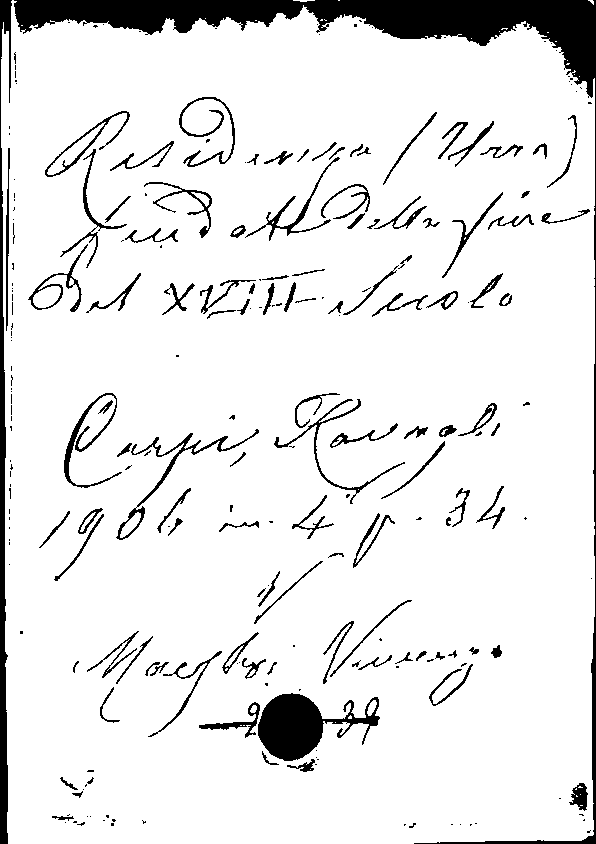 Residenza (Una)
feudale della fine
del XVIII Secolo
Carpi, Ravagli
1906 in. 4° p. 34.
Maestri Vincenzo